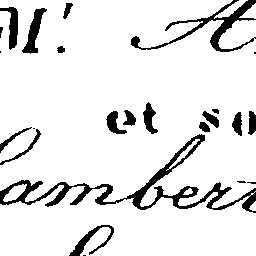 M! A
et so
Lambert